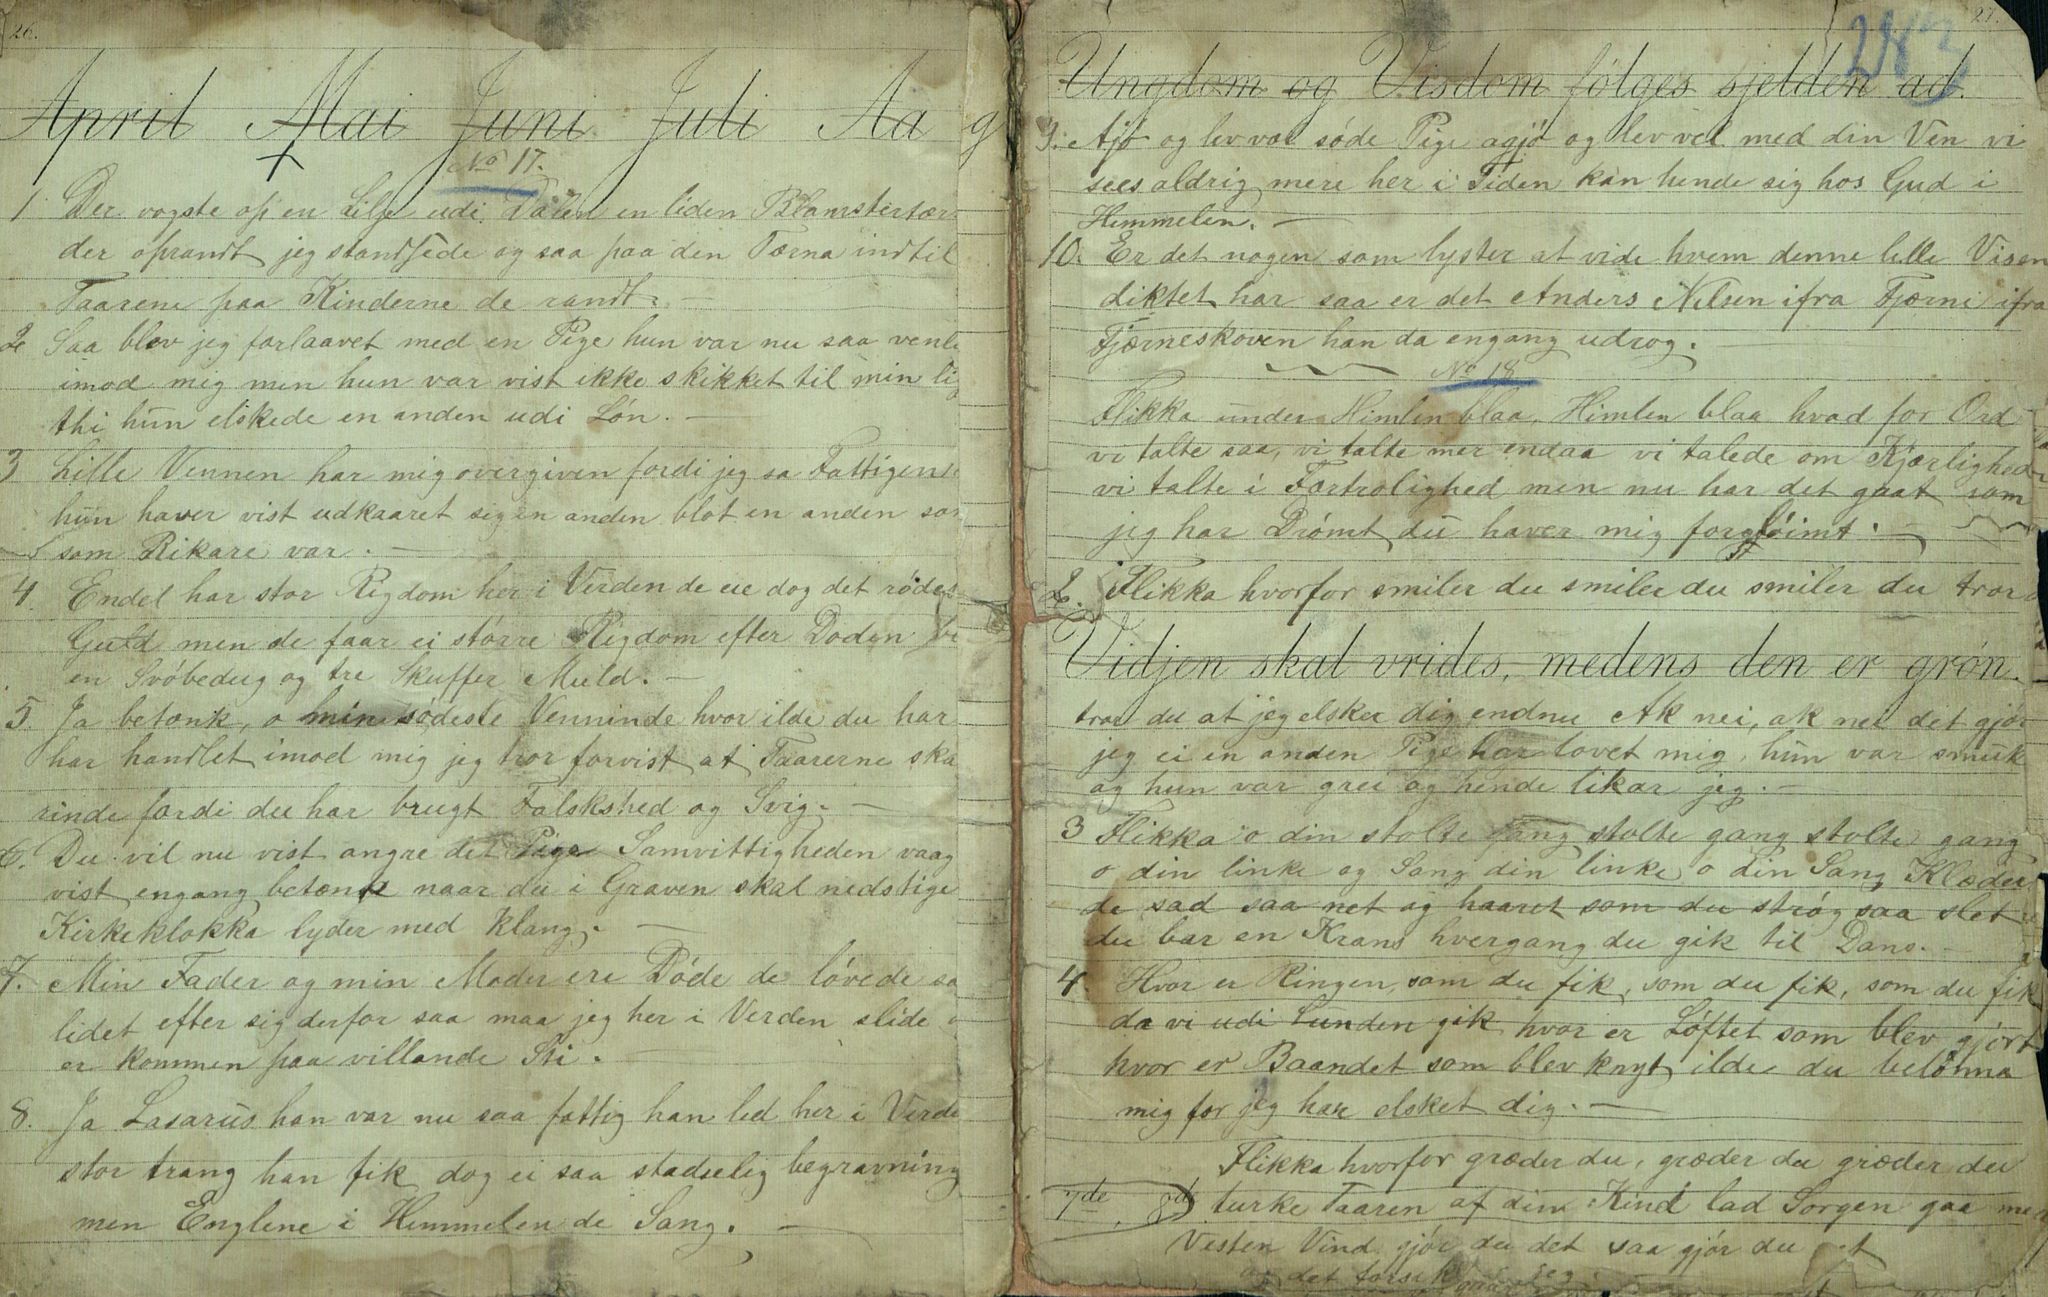 26.
April Mai Juni Juli Aa g
No 17.
1 Der vogste op en Lilje udi Dalen en liden Blomstertær
der oprandt jeg standsede og saa paa den Tærna indtil
Taarene paa Kinderne de randt. —
2 Saa blev jeg forlaavet med en Pige hun var nu saa venli
imod mig men hun var vist ikke skikket til min lig
thi hun elskede en anden udi Løn. —
3 Lille Vennen har mig overgiven fordi jeg sa Fattigen
hun haver vist udkaaret sig en anden blot en anden som
som Rikare var. —
4. Endel har stor Rigdom her i Verden de eie dog det røde
Guld men de faar ei større Rigdom efter Doden
en Svøbedug og tre Skuffer Muld. —
5. Ja betænk, o min sødeste Venninde hvor ilde du har
har handlet imod mig jeg tror forvist at Taarerne ska
rinde fordi du har brugt Falskshed og Svig. —
6. Du vil nu vist angre det Pige Samvittigheden vaag
vist engang betænk naar du i Graven skal nedstige
Kirkeklokka lyder med Klang. —
7. Min Fader og min Moder ere Døde de løvede
lidet efter sig derfor saa maa jeg her i Verden slide
er kommen paa villande Sti. —
8. Ja Lasarus han var nu saa fattig han led her i Verde
stor trang han fik dog ei saa stadselig begravning
men Englene i Himmelen de Sang. —
27.
243
Ungdom og Visdom følges sjelden ad.
9. Ajø og lev vel søde Pige agjø og lev vel med din Ven vi
sees aldrig mere her i Tiden kan hende sig hos Gud i
Himmelen. —
10. Er det nogen som lyster at vide hvem denne lille Visen
diktet har saa er det Anders Nelsen ifra Fjærni ifra
Fjærneskoven han da engang udrog. —
No 18
Flikka under Himlen blaa, Himlen blaa hvad for Ord
vi talte saa, vi talte mer endaa vi talede om Kjærlighed
vi talte i Fortrolighed men nu har det gaat som
jeg har Drømt du haver mig forgløimt. —
2. Flikka hvorfor smiler du smiler du smiler du tror
Vidjen skal vrides, medens den er grøn.
tror du at jeg elsker dig endnu Ak nei, ak nei det gjør
jeg ei en anden Pige har lovet mig, hun var smuk
og hun var grei og hende likar jeg. —
3 Flikka o din stolte gang stolte gang stolte gang
o din linke og Sang din linke o din Sang Klæder
de sad saa net og haaret som du strøg saa slet
du bar en Krans hvergang du gik til Dans. —
4. Hvor er Ringen, som du fik, som du fik, som du fik
da vi udi Lunden gik hvor er Løftet som blev gjørt
hvor er Baandet som blev knyt ilde du beløhna
mig for jeg har elsket dig. —
Flikka hvorfor græder du, græder du græder du
7de 8d) turke Taaren af din Kind lad Sorgen gaa med
Vesten Vind gjør du det saa gjør du et
og det forsik jeg